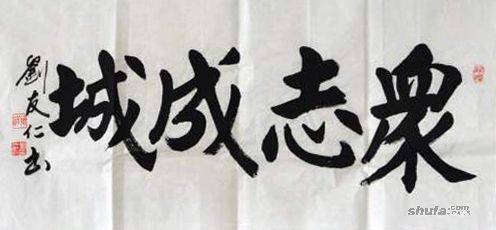 眾志成城
劉友仁书
shufa.com